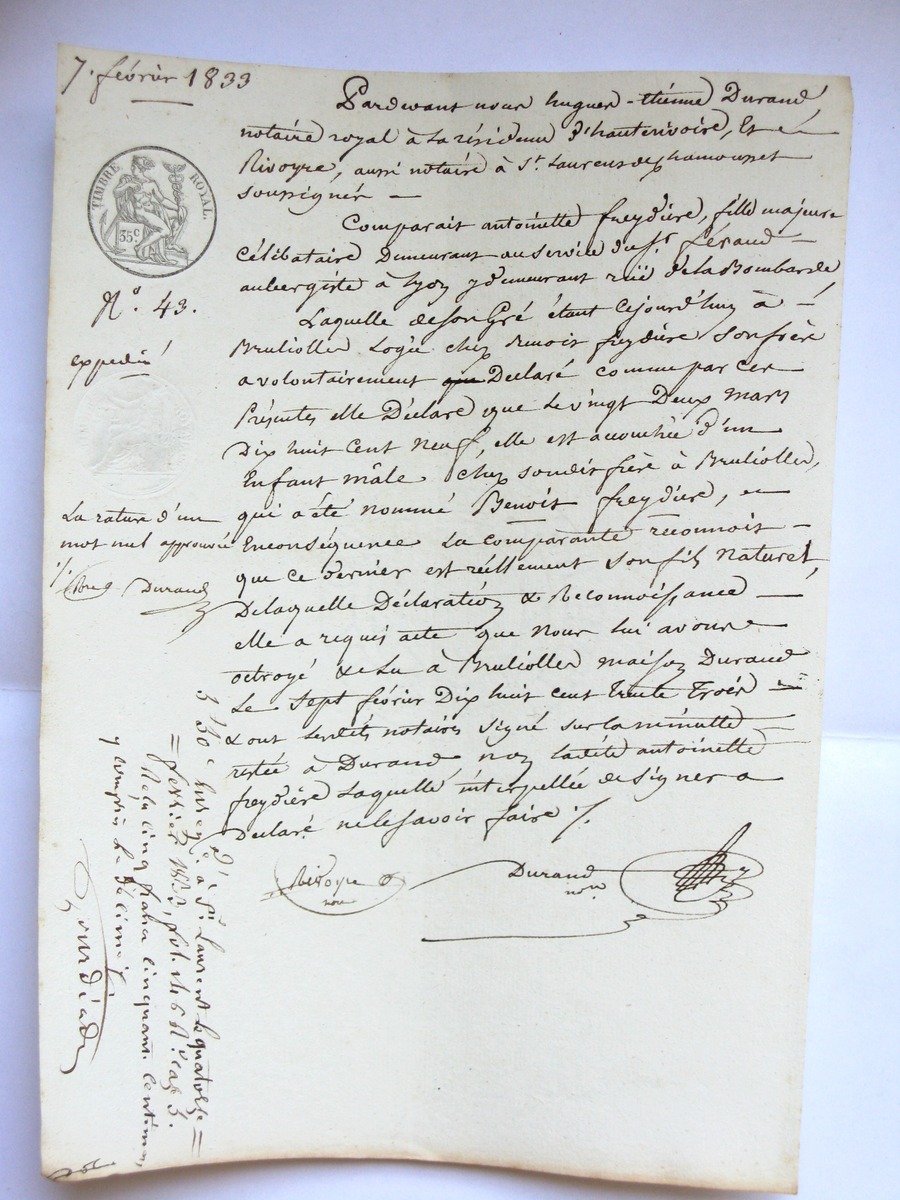 7. février 1833
Pardevant nous hugues-étienne Durand
notaire royal à la résidence d'hauterivoire, Et
Rivoyre, aussi notaire à St. Laurens de chamousset
soussignés —
TIMBRE ROYAL.
35 c.
Comparait antoinette freydière, fille majeure
Célibataire Demeurant au service du sr. féraud —
aubergiste à Lyon y demeurant ruë de la Bombarde
No. 43.
Laquelle de son Gré étant Cejourd'huy à —
expedié
Brulliolles Logée chez Benoit freydière son frère
a volontairement que Declaré comme par Ces
Présentes elle Déclare que le vingt Deux mars
Dix huit Cent Neuf, elle est accouchée d'un
Enfant mâle chez son dit frère à Brulliolles,
qui a été nommé Benoit freydière, en
La rature d'un
mot nul approuvée
Riv Durand
Enconséquence la comparante reconnoit —
que ce dernier est réellement son fils Naturel,
De laquelle Déclaration & Reconnoissance —
elle a requis acte que Nous lui avons
octroyé & Lu à Brulliolles maison Durand
Le sept février Dix huit cent trente Trois —
& ont lesdits notaires signé sur la minutte
restée à Durand non ladite antoinette
freydière Laquelle interpellée de signer a
Declaré ne le savoir faire ./.
Rivoyre
nore
Durand
nore
Enreg. à St. Laurent le quatorze =
= février 1833, fol. 146 Ro. Case 3.
Reçu cinq francs cinquante Centimes,
y compris le Décime ./.